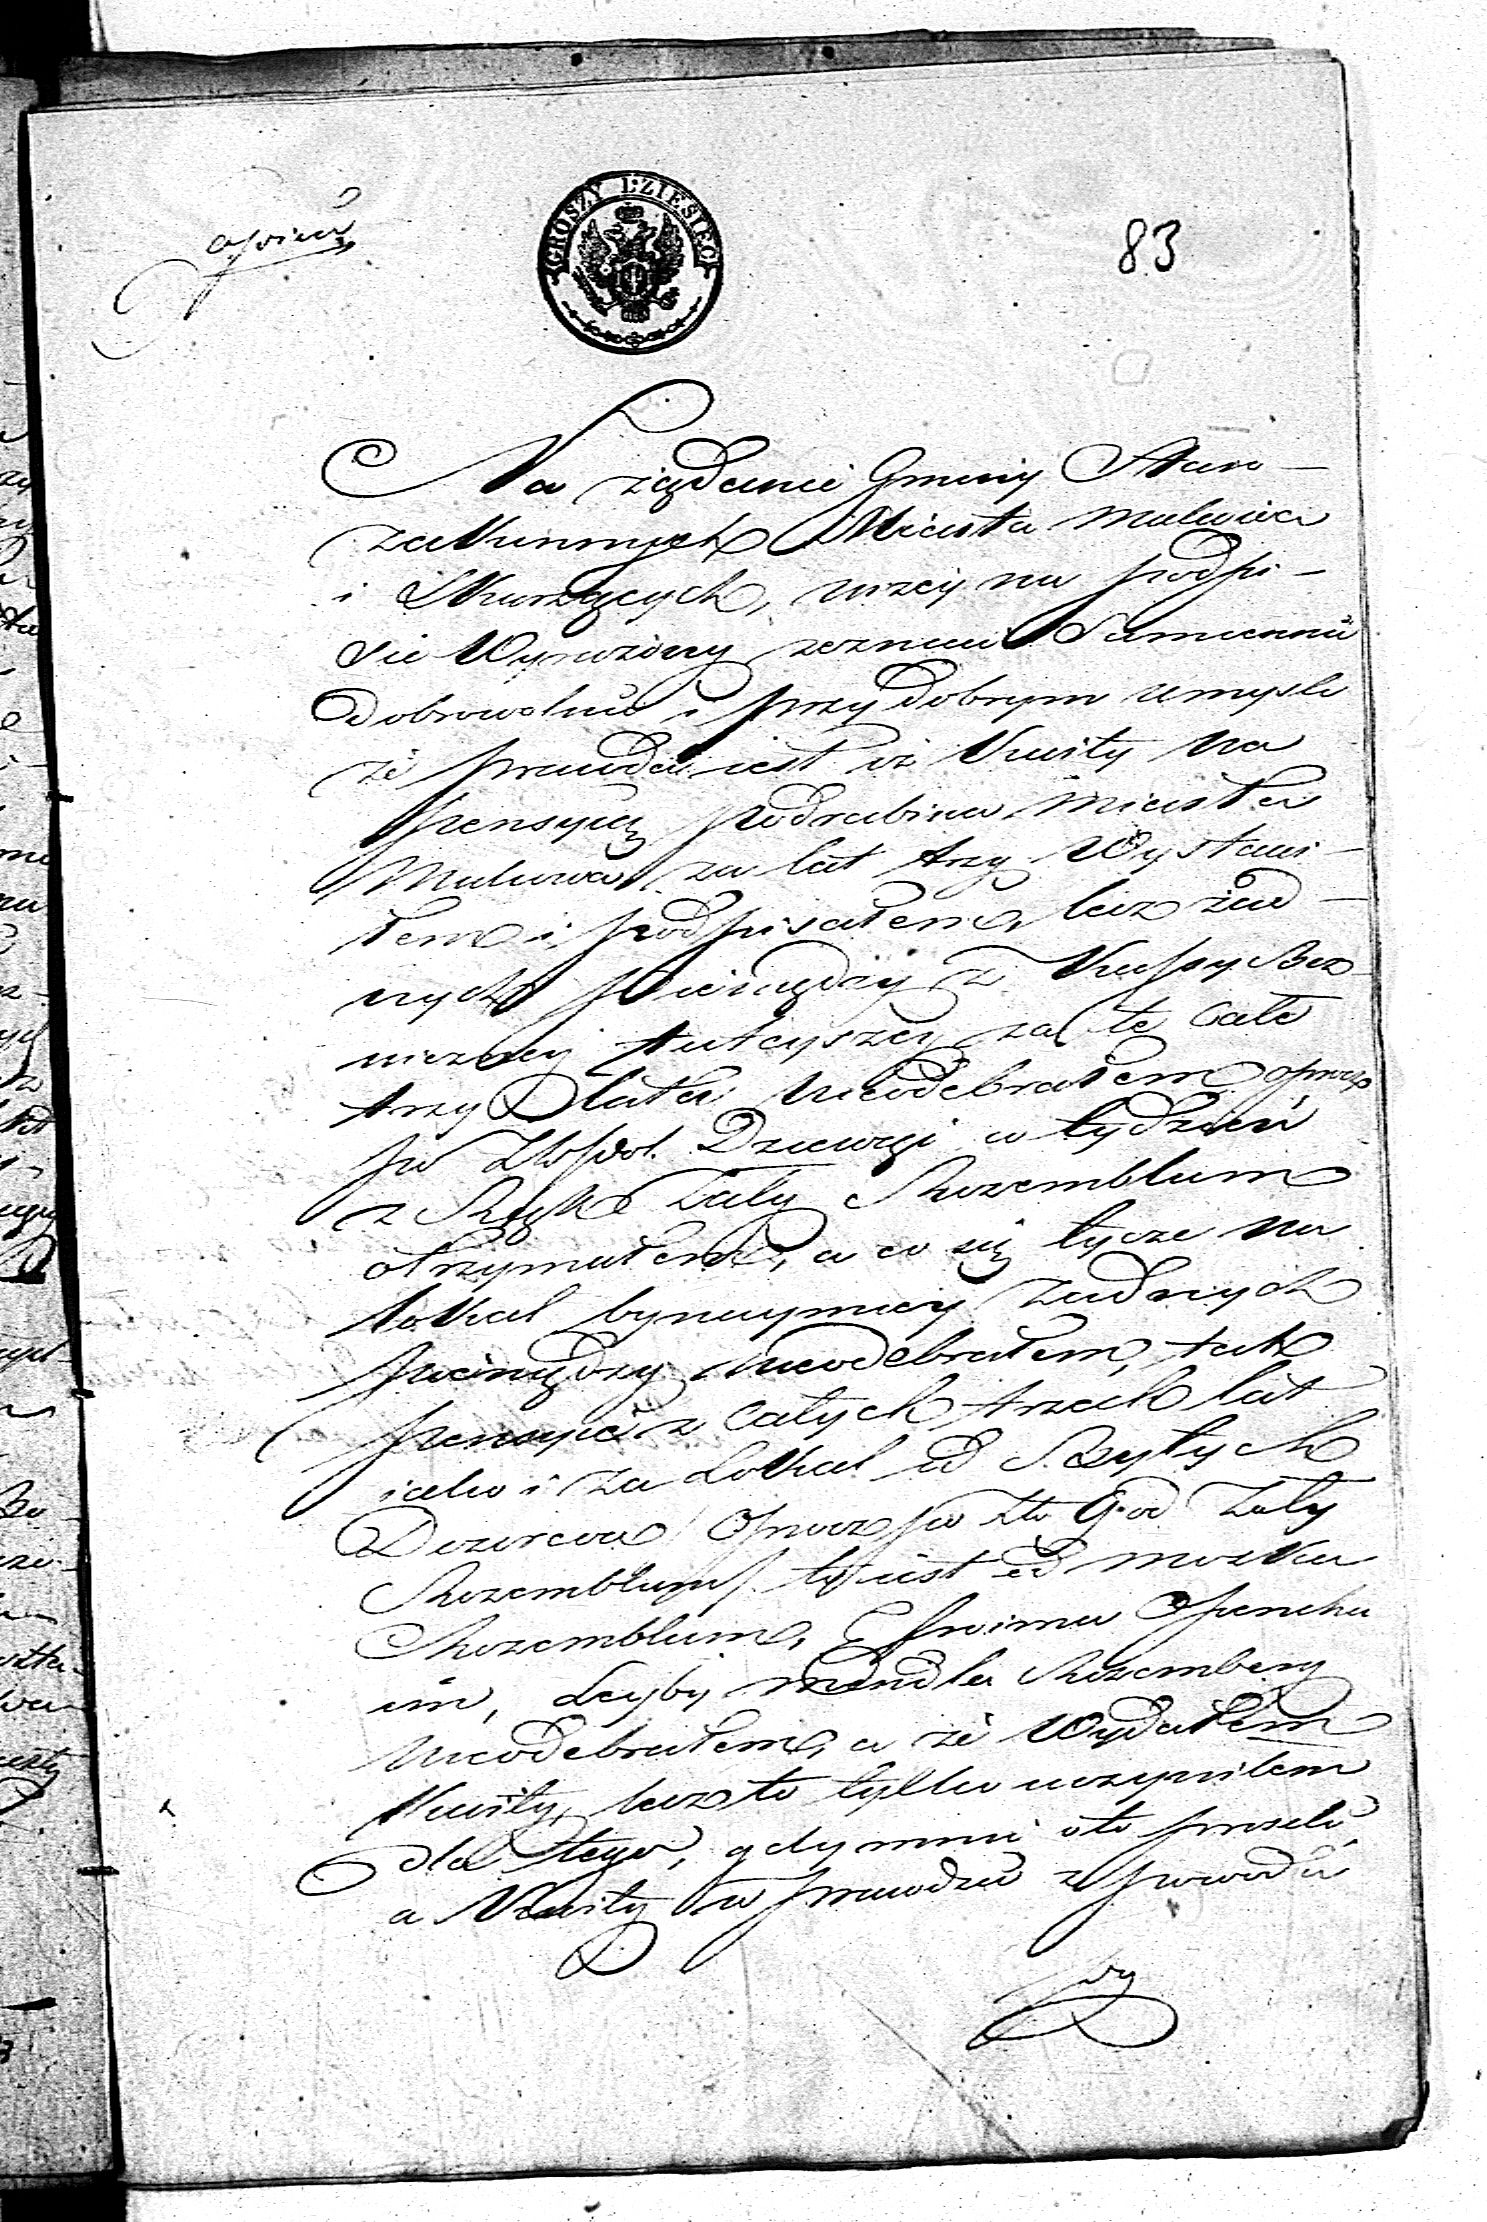 Kopia
GROSZY DZIESIĘC
83
Na żądanie Gminy Staro-
zakonnych Miasta Makowa
i Skarzących, niżej na podpi-
sie Wyrażony zeznaie Sumiennie
Dobrowolnie i przy dobrym umyśle
że prawdą iest iż Kwity na
pensyią podrabina Miasta
Makowa za lat trzy Wystawi-
łem i podpisałem, lecz żad-
nych Pieniędzy z Kassy Boż-
niczney tuteyszey za te Całe
trzy lata nieodebrałem oprocz
po Złpol. Dziewięć w tydzień
z Rąk Taly Rozemblum
otrzymałem, a co się tycze na
lokal bynaymniey Żadnych
pieniędzy nieodebrałem, tak
pensyi z całych trzech lat
iako i za Lokal od S. Byłych
Dozorców Oprocz po Zło 9 od Taly
Rozemblum, to iest od Moszka
Rozemblum, Efroima Openha
im, Leyby Mendla Rozemberg
nieodebrałem, a że Wydałem
Kwity, lecz to tylko uczyniłem
dla tego, gdy mnie oto prosili
a Kwity w prawdzie z powodu